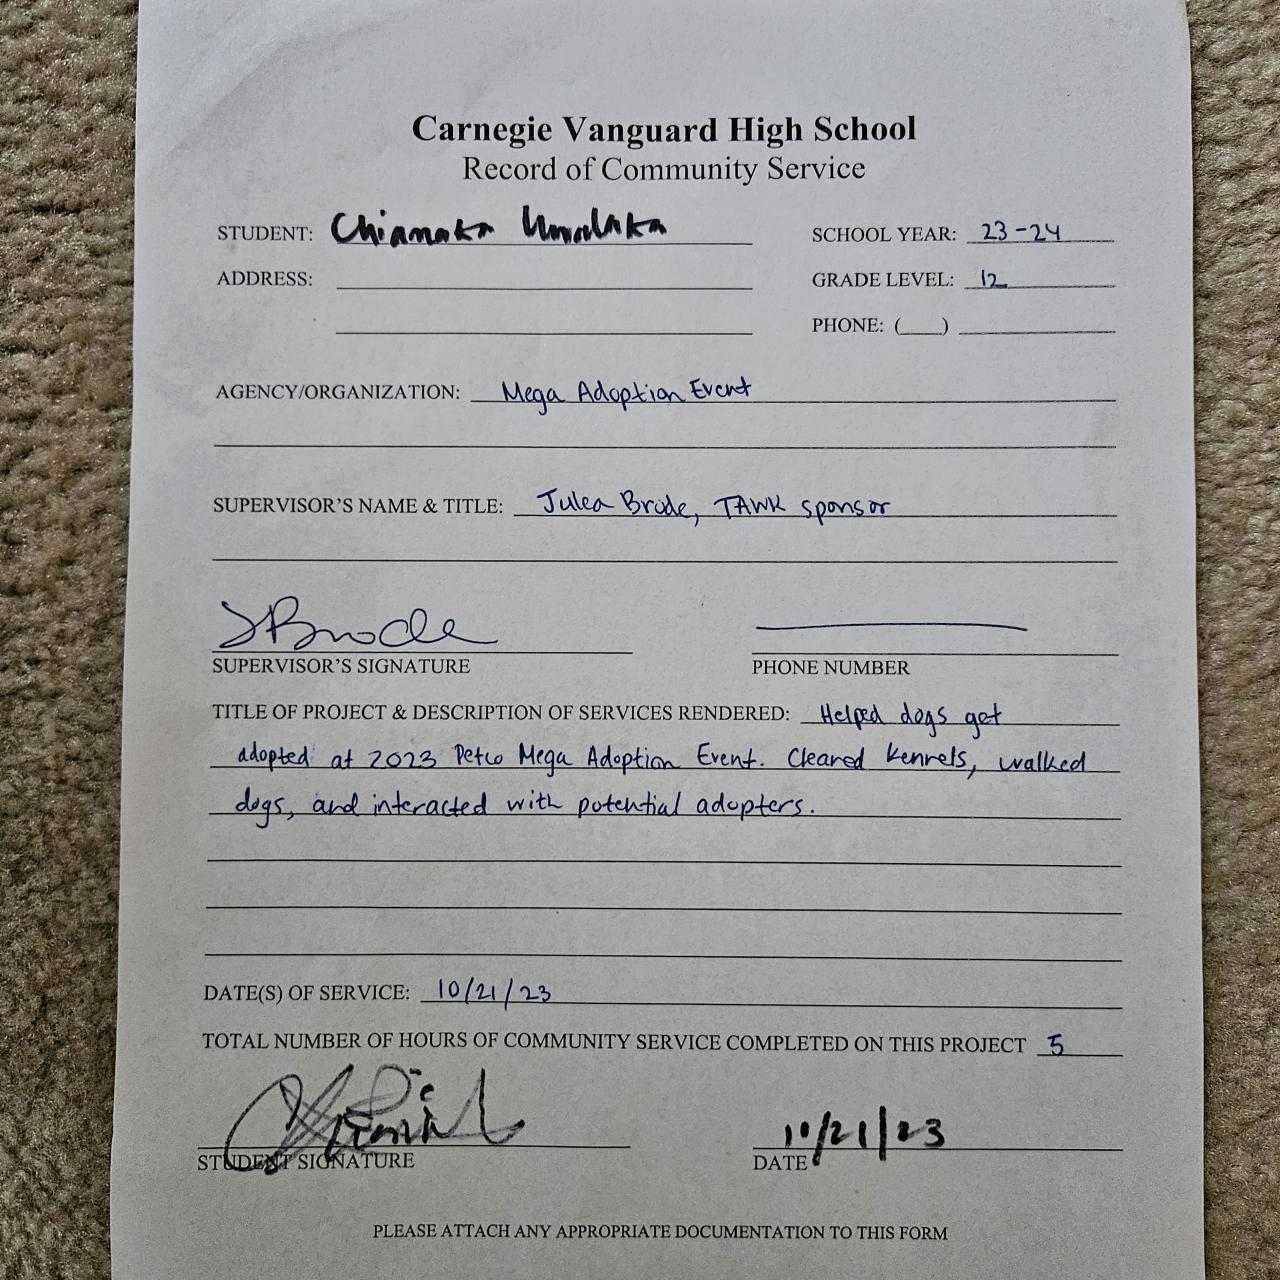 Carnegie Vanguard High School
Record of Community Service
STUDENT: Chiamaka
SCHOOL YEAR: 23-24
ADDRESS:
GRADE LEVEL: 12
PHONE: (___)
AGENCY/ORGANIZATION: Mega Adoption Event
SUPERVISOR'S NAME & TITLE: Julea Brode, TAWK sponsor
JBrode
SUPERVISOR'S SIGNATURE
PHONE NUMBER
TITLE OF PROJECT & DESCRIPTION OF SERVICES RENDERED: Helped dogs get
adopted at 2023 Petco Mega Adoption Event. Cleared kennels, walked
dogs, and interacted with potential adopters.
DATE(S) OF SERVICE: 10/21/23
TOTAL NUMBER OF HOURS OF COMMUNITY SERVICE COMPLETED ON THIS PROJECT 5
10/21/23
STUDENT SIGNATURE
DATE
PLEASE ATTACH ANY APPROPRIATE DOCUMENTATION TO THIS FORM